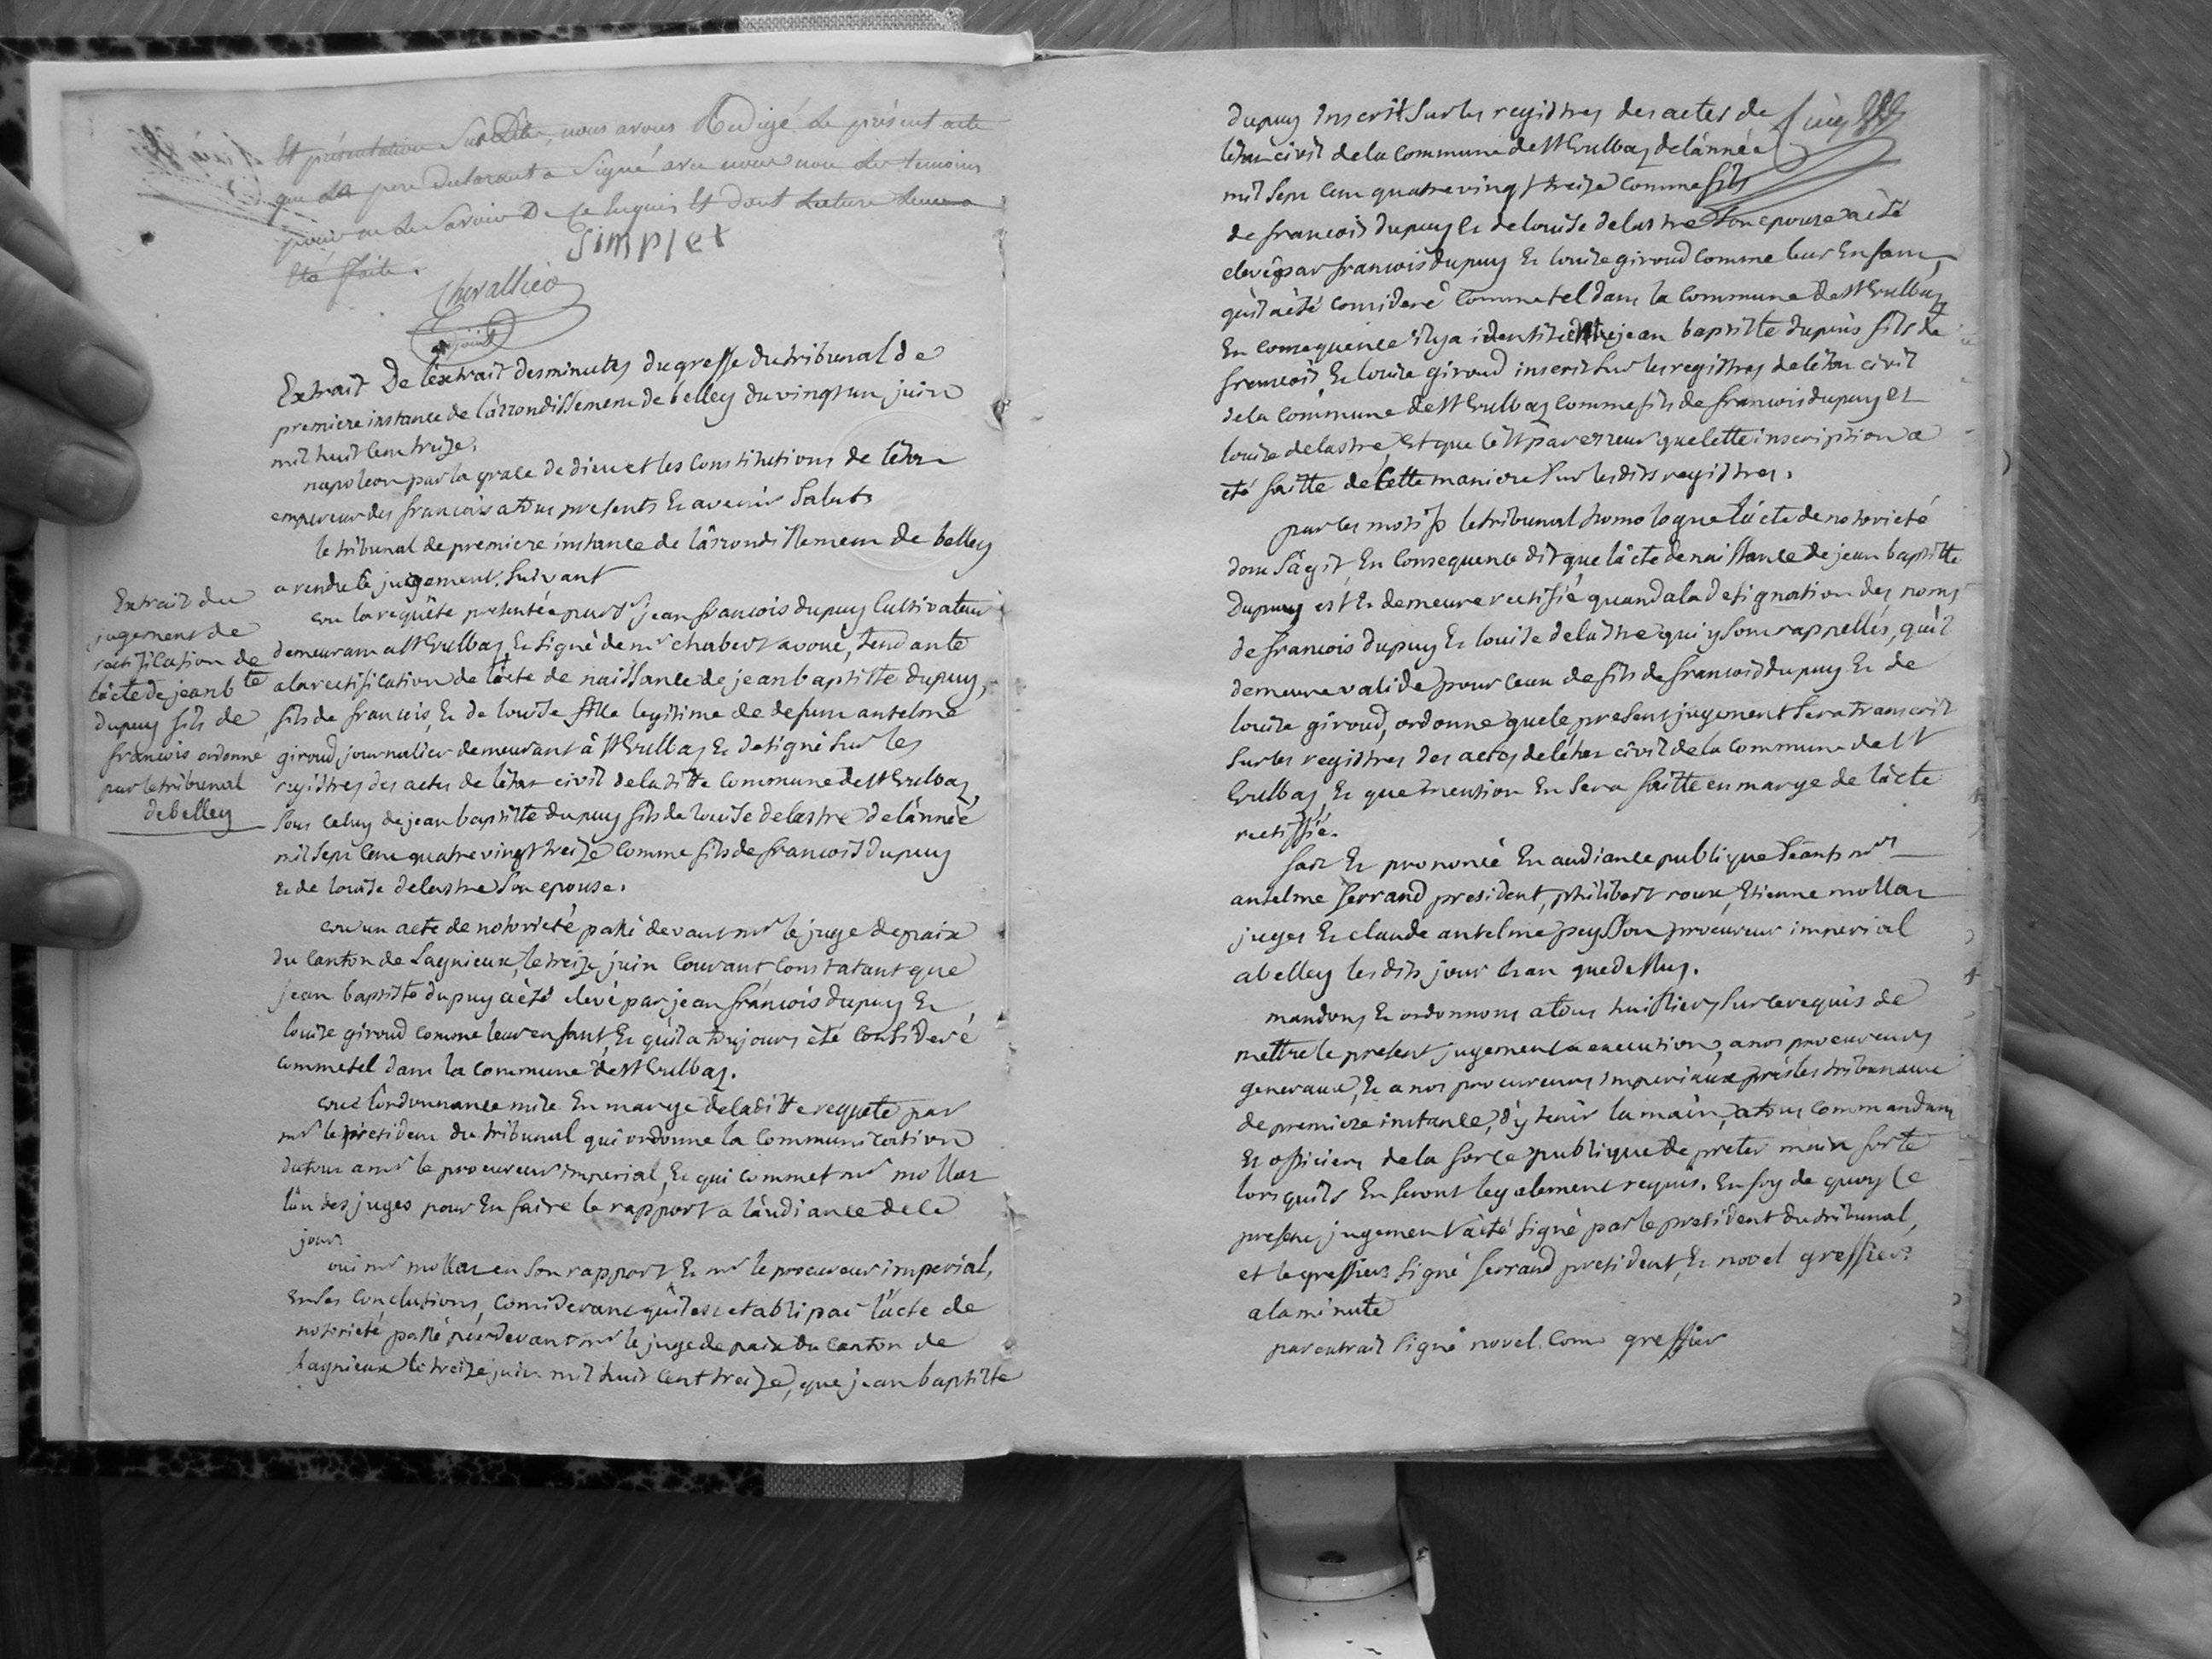 Et présentation Sus Dite, nous avons Redigé Le présent acte
que Le pere Declarant a Signé avec nous non Les temoins
pour ne Le Savoir De Ce Enquis Et Dont Lecture Leur a
Eté faite.
Simplet
Chevallier
adjoint
Extrait De l'extrait des minutes du greffe du tribunal de
premiere instance de l'arrondissement de belley du vingt un juin
mil huit cent treize.
napoleon par la grace de dieu et les Constitutions de l'etat
empereur des francais a tous presents Et avenir Salut
le tribunal de premiere instance de l'arrondissement de belley
a rendu le jugement Suivant
Extrait du
jugement de
rectification de
l'acte de jean bte
dupuy fils de
francois ordonné
par le tribunal
de belley
vu la requête presentée par Sr jean francois dupuy Cultivateur
demeurant a St Vulbas, Et Signé de mr chabert avoué, tendante
a la rectification de l'acte de naissance de jean baptiste dupuy,
fils de francois, Et de louise fille legitime de defunt antelme
giroud journalier demeurant à St Vulbas, Et designé Sur les
registres des actes de l'etat civil de la ditte Commune de St Vulbas,
Sous Celuy de jean baptiste dupuy fils de louise delastre de l'année
mil Sept Cent quatre vingt treize Comme fils de francois dupuy
Et de louise delastre Son epouse.
vu un acte de notorieté passé devant mr le juge de paix
du Canton de Lagnieux, le treize juin Courant, Constatant que
jean baptiste dupuy a été elevé par jean francois dupuy Et
louise giroud comme leur enfant, Et qu'il a toujours été Consideré
comme tel dans la Commune de St Vulbas.
vu l'ordonnance mise En marge de la ditte requete par
mr le president du tribunal qui ordonne la Communication
du tout a mr le procureur imperial, Et qui commet mr mollat
l'un des juges pour En faire le rapport a l'audiance de ce
jour.
oui mr mollat en Son rapport Et mr le procureur imperial,
en Ses Conclusions, Considerant qu'il est etabli par l'acte de
notorieté passé par devant mr le juge de paix du Canton de
Lagnieux le treize juin mil huit Cent treize, que jean baptiste
dupuy inscrit Sur les registres des actes de
l'etat civil de la Commune de St Vulbas de l'année
mil Sept Cent quatre vingt treize Comme fils
de francois dupuy Et de louise delastre Son epouse a été
elevé par francois dupuy Et louise giroud comme leur Enfant,
qu'il a été Consideré Comme tel dans la Commune de St Vulbas,
En Consequence il y a identité entre jean baptiste dupuis fils de
francois, Et louise giroud inscrit Sur les registres de l'etat civil
de la Commune de St Vulbas Comme fils de francois dupuy et
louise delastre, et que C'est par erreur que Cette inscription a
eté faitte de Cette maniere Sur les dits registres.
par Ces motifs le tribunal homologue l'acte de notorieté
dont S'agit, En Consequence dit que l'acte de naissance de jean baptiste
Dupuy est Et demeure rectifié quand a la designation des noms
de francois dupuy Et louise delastre qui y Sont rappellés, qu'il
demeure valide pour Ceux de fils de francois dupuy Et de
louise giroud, ordonne que le present jugement Sera transcrit
Sur les registres des actes de l'etat civil de la Commune de St
Vulbas, Et que mention En Sera faitte en marge de l'acte
rectifié.
fait Et prononcé En audiance publique Séants mrs
antelme ferrand president, philibert roux, Etienne mollat
juges Et claude antelme peysson procureur imperial
a belley les dits jour Et an que dessus.
mandons Et ordonnons a tous huissiers, Sur Ce requis de
mettre le present jugement a execution, a nos procureurs
generaux, Et a nos procureurs imperiaux près les tribunaux
de premiere instance, d'y tenir la main, a tous commandants
Et officiers de la force publique de preter main forte
lorsqu'ils En Seront legalement requis. En foy de quoy le
present jugement a été Signé par le president du tribunal,
et le greffier Signé ferrand president, Et novel greffier
a la minute
par extrait Signé novel. Com greffier